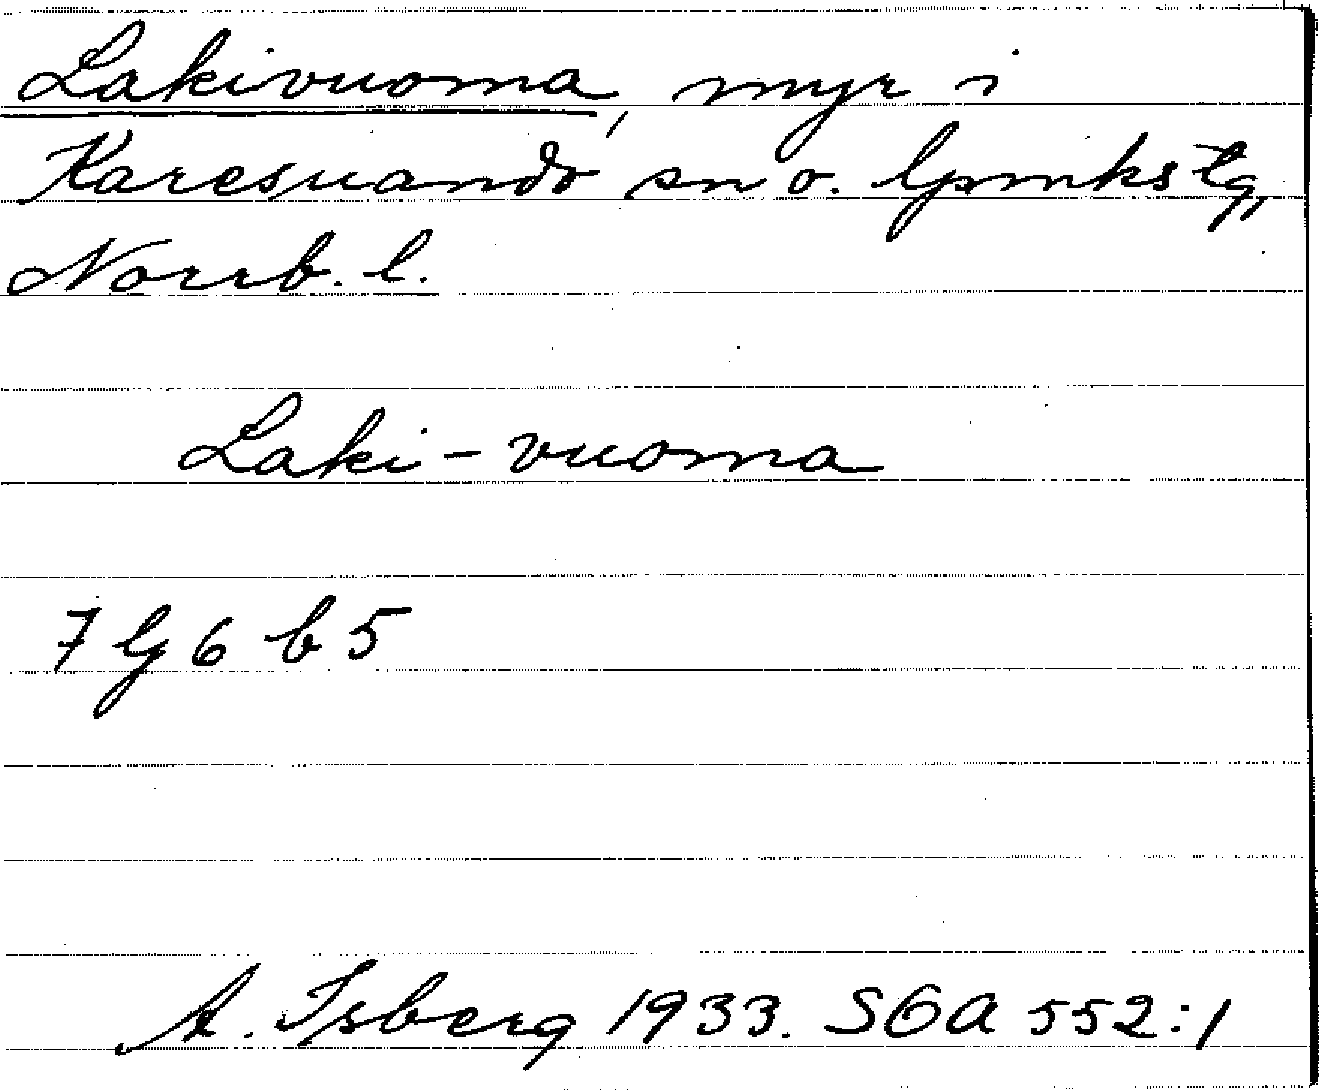 Lakivuoma, myr i
Karesuando sn o. lpmkstg,
Norrb. l.
Laki-vuoma
7 g 6 b 5
A. Isberg 1933. SOA 552:1